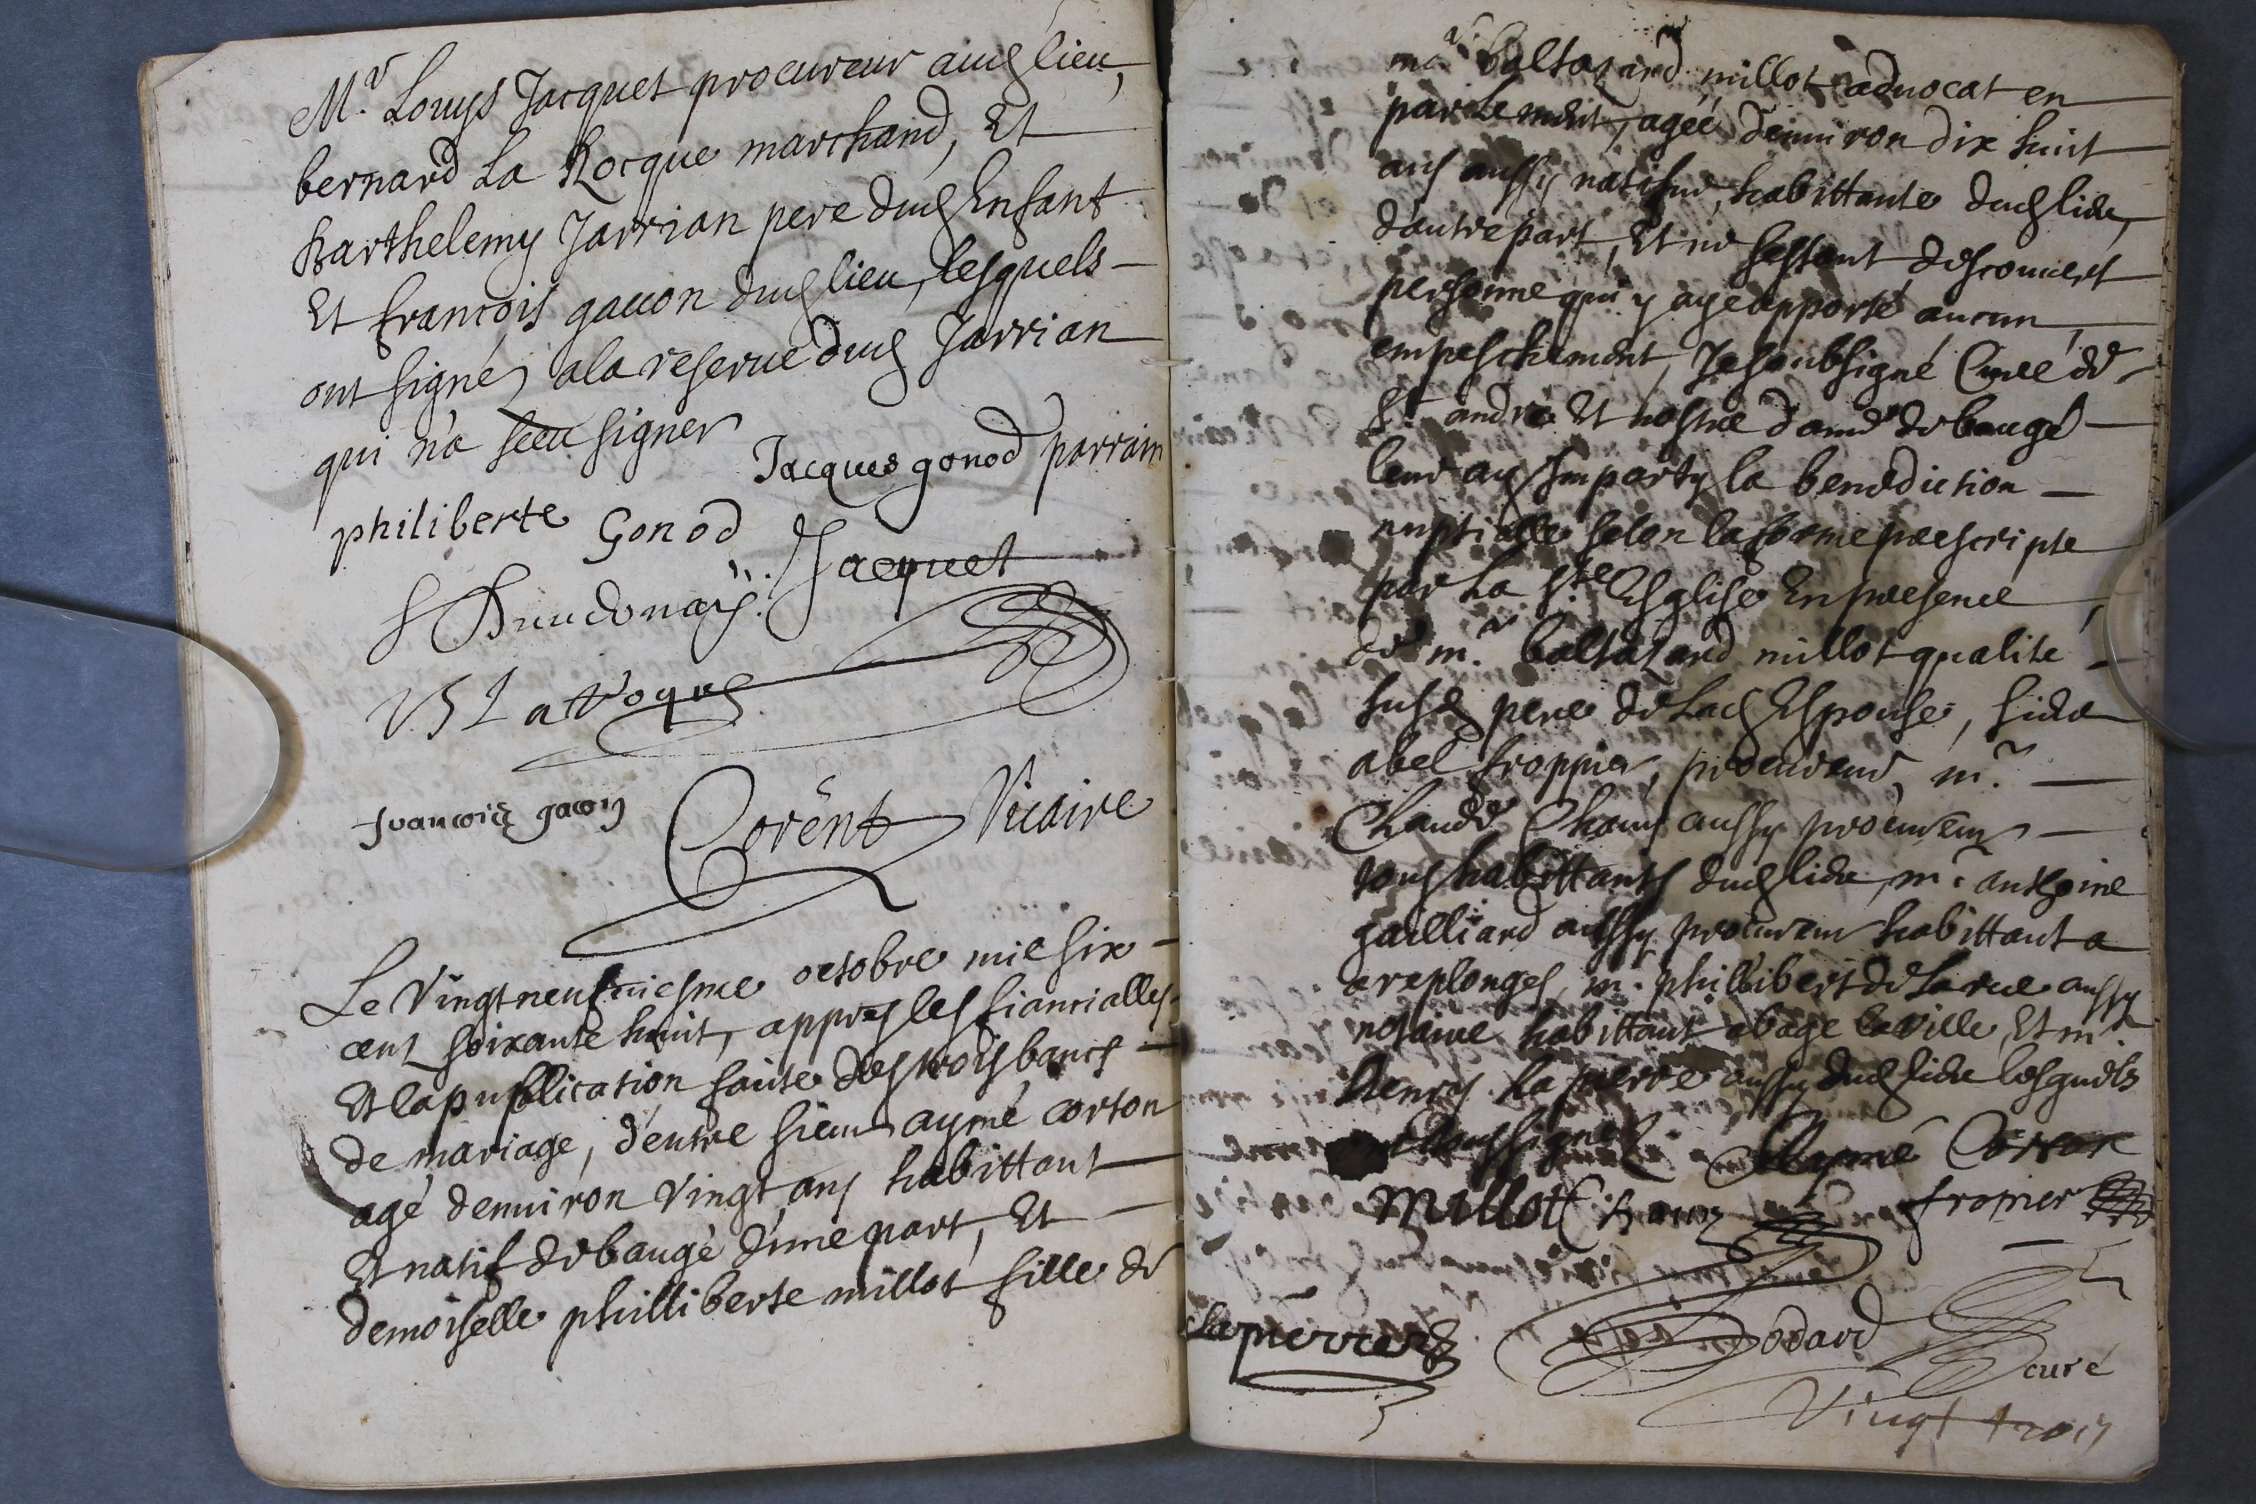 Mr. Louys Jacquet procureur aud lieu,
bernard La Rocque marchand, Et
Barthelemy Jarrian pere dud Enfant
Et francois gauon dud lieu, lesquels
ont signé, a la reserue dud Jarrian
qui n'a sceu signer
Jacques gonod parrain
philiberte Gonod
Jacquet
La Roque
francois gacon
Corent Vicaire
Le Vingt neufuiesme octobre mil six
cent soixante huit, appres les fiancialles
Et la publication faite des trois bancs
de mariage, d'entre sieur aymé corton
agé denuiron vingt ans habittant
Et natif de baugé d'une part, Et
demoiselle philliberte millot fille de
mre baltazard millot aduocat en
parlement, agée d'enuiron dix huit
ans aussy natifue, habittante dud lieu,
d'autre part, Et ne sestant descouuert
personne qui y aye apporté aucun
empeschement, Je soubsigné Curé de
St. andré Et nostre dame de baugé
leur ay Imparty la benediction
nuptialle selon la forme prescripte
par La Ste Esglise En presence
de mr. baltazard millot qualité
susd pere de Lad Espouse, sieur
abel froppier, procureur, mr.
Claude Chaur aussy procureur
tous habittants dud lieu, mr. anthoine
gailliard aussy procureur habittant a
a replonges, mr. phillibert de Larue aussy
notaire habittant a bage la ville, Et mr.
Henry La pierre aussy dud lieu lesquels
ont tous signez
Aymé Corton
Millot
fropier
Lapierre
curé
Vingt trois